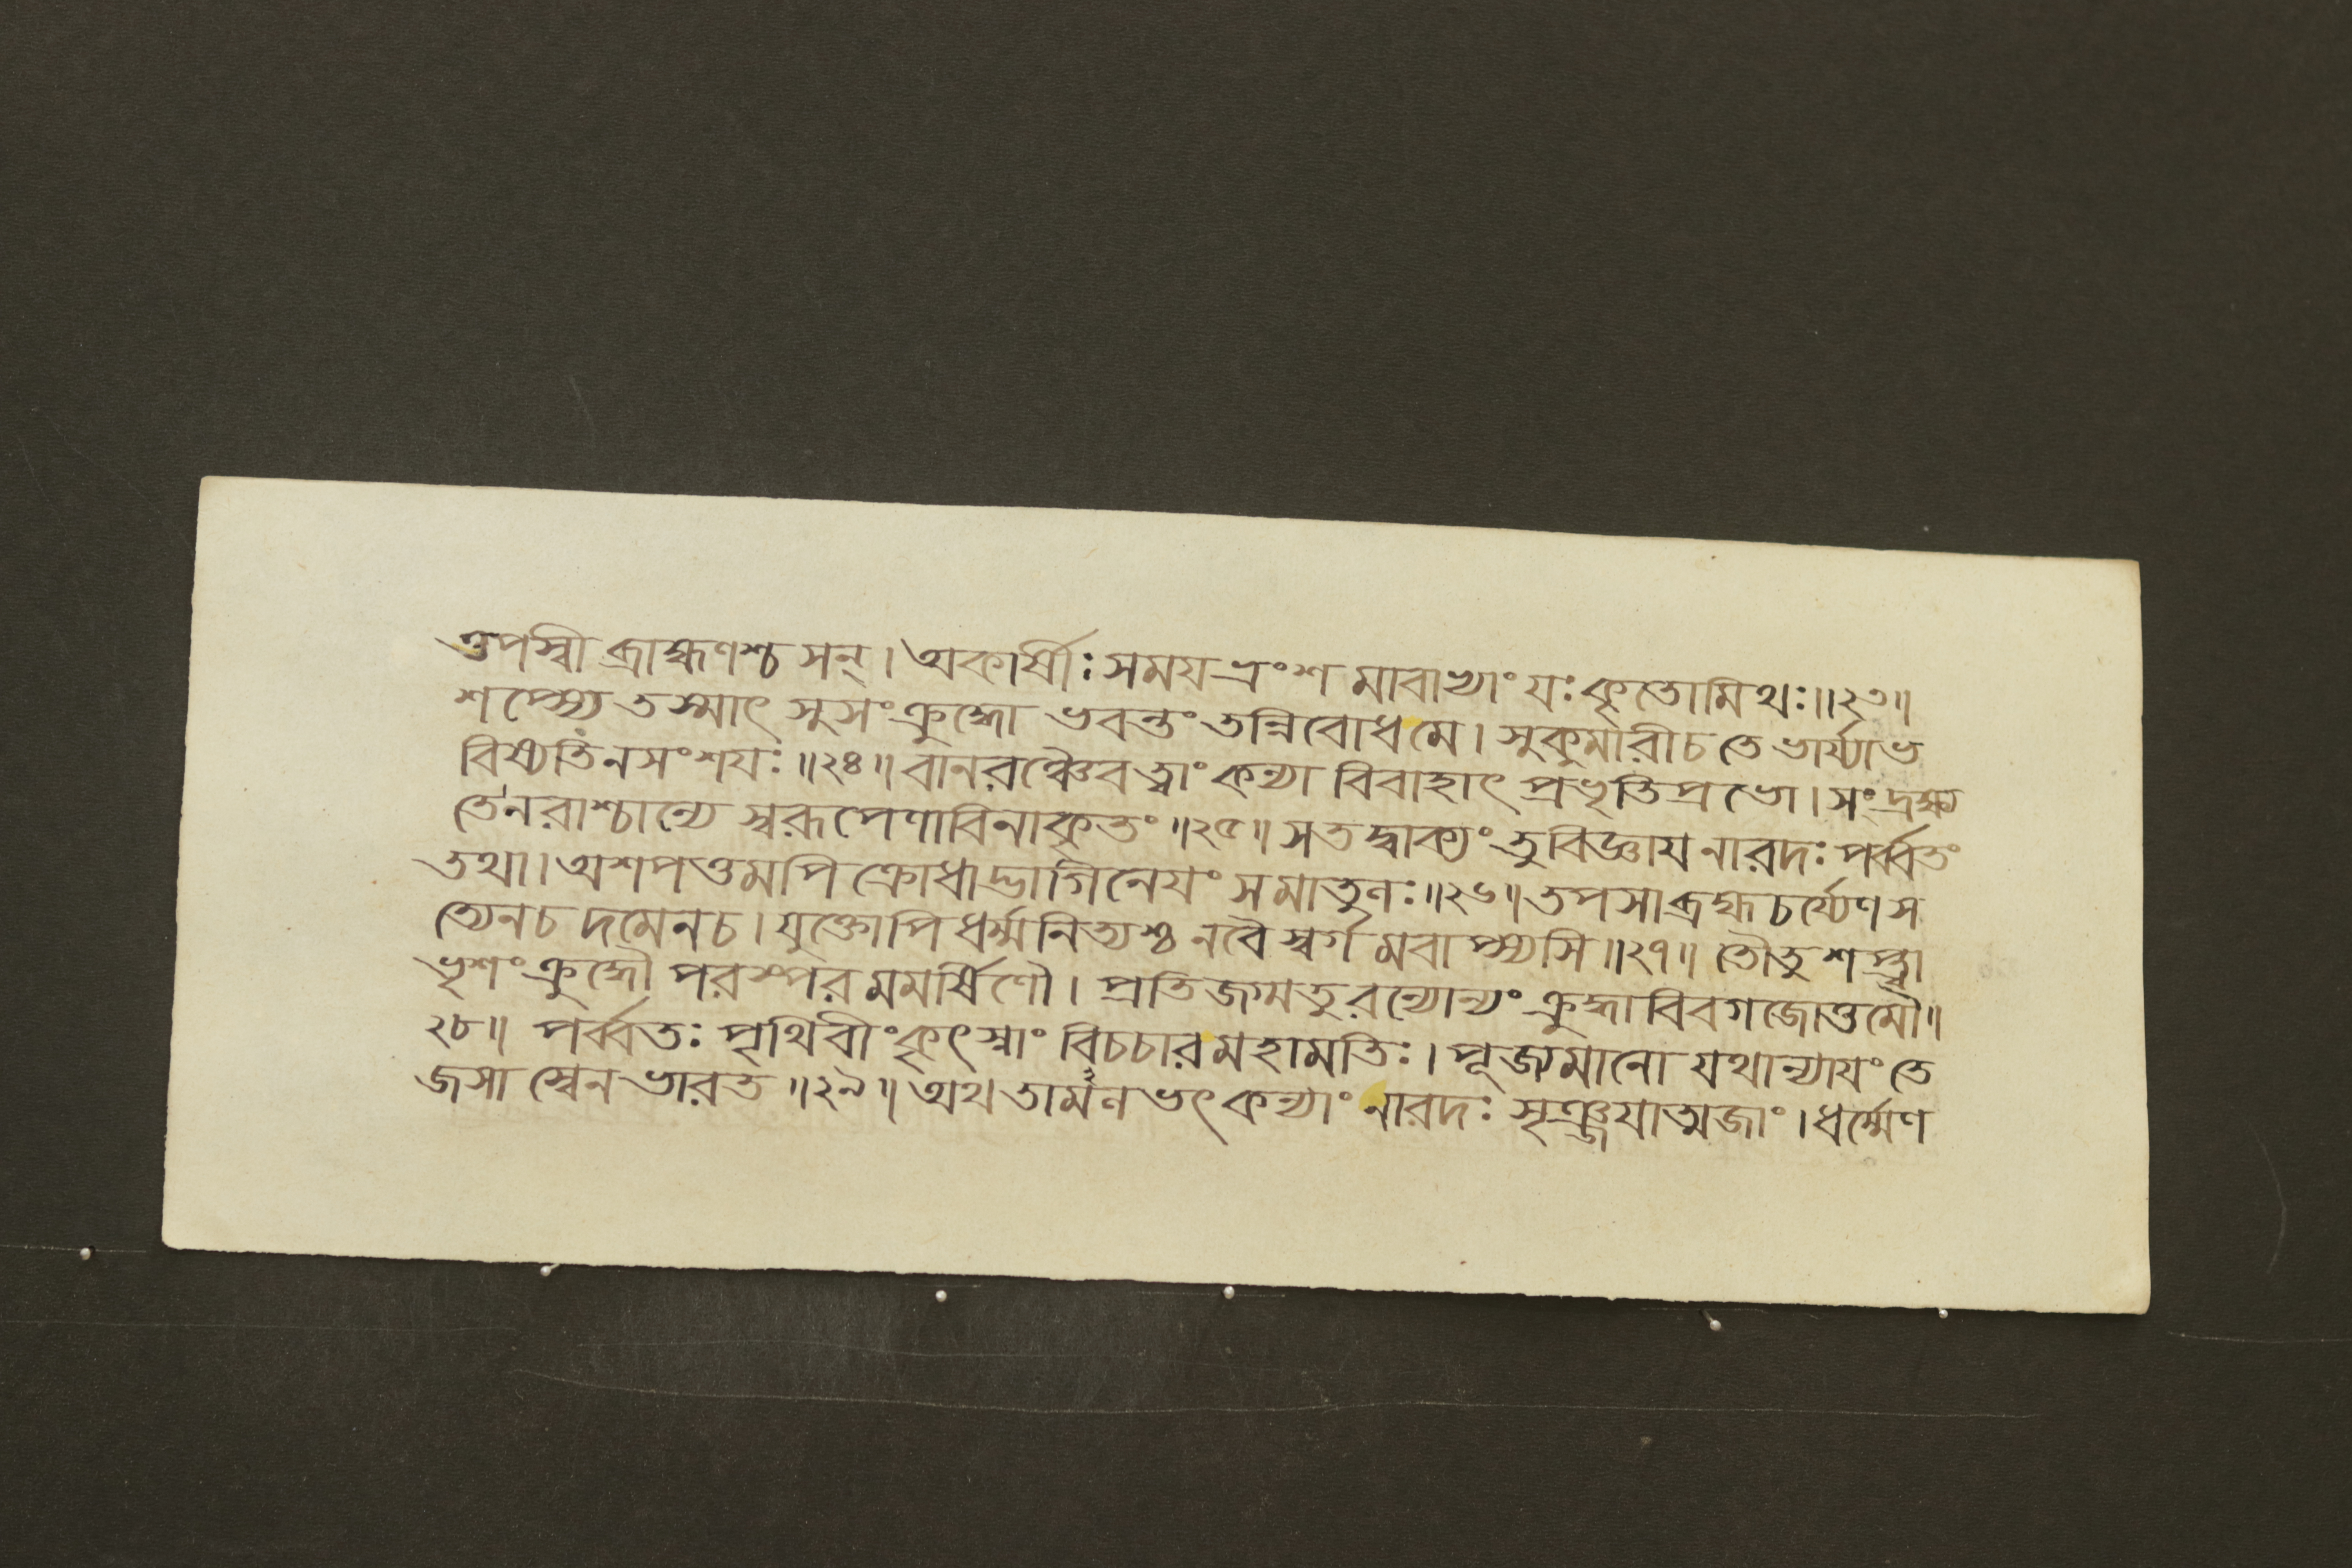 স্তপস্বী ব্রাহ্মণশ্চ সন্। অকার্ষীঃ সময ভ্রংশ মাবাভ্যাং যঃ কৃতোমিথঃ॥২৩॥
শপ্স্যে তস্মাৎ সুসংক্রুদ্ধো ভবন্তং তন্নিবোধমে। সুকুমারীচ তে ভার্য্যাভ
বিষ্যতি নসংশযঃ॥২৪॥ বানরঞ্চৈব ত্বাং কন্যা বিবাহাৎ প্রভৃতিপ্রভো। সংদ্রক্ষ্য
ন্তি নরাশ্চান্যে স্বরূপেণাবিনাকৃতং॥২৫॥ সতদ্বাক্যং তুবিজ্ঞায নারদঃ পর্ব্বতং
তথা। অশপত্তমপি ক্রোধাদ্ভাগিনেযং সমাতুলঃ॥২৬॥ তপসাব্রহ্মচর্য্যেণস
ত্যেনচ দমেনচ। যুক্তোপি ধর্ম্মনিত্যশ্চ নবৈ স্বর্গ মবাপ্স্যসি॥২৭॥ তৌতু শপ্ত্বা
ভৃশং ক্রুদ্ধৌ পরস্পর মমর্ষিণৌ। প্রতিজগ্মতুরন্যোন্যং ক্রুদ্ধাবিবগজোত্তমৌ॥
২৮॥ পর্ব্বতঃ পৃথিবীংকৃৎস্নাং বিচচারমহামতিঃ। পূজ্যমানো যথান্যাযং তে
জসা স্বেন ভারত॥২৯॥ অথতামলভৎ কন্যাং নারদঃ সৃঞ্জযাত্মজাং। ধর্ম্মেণ